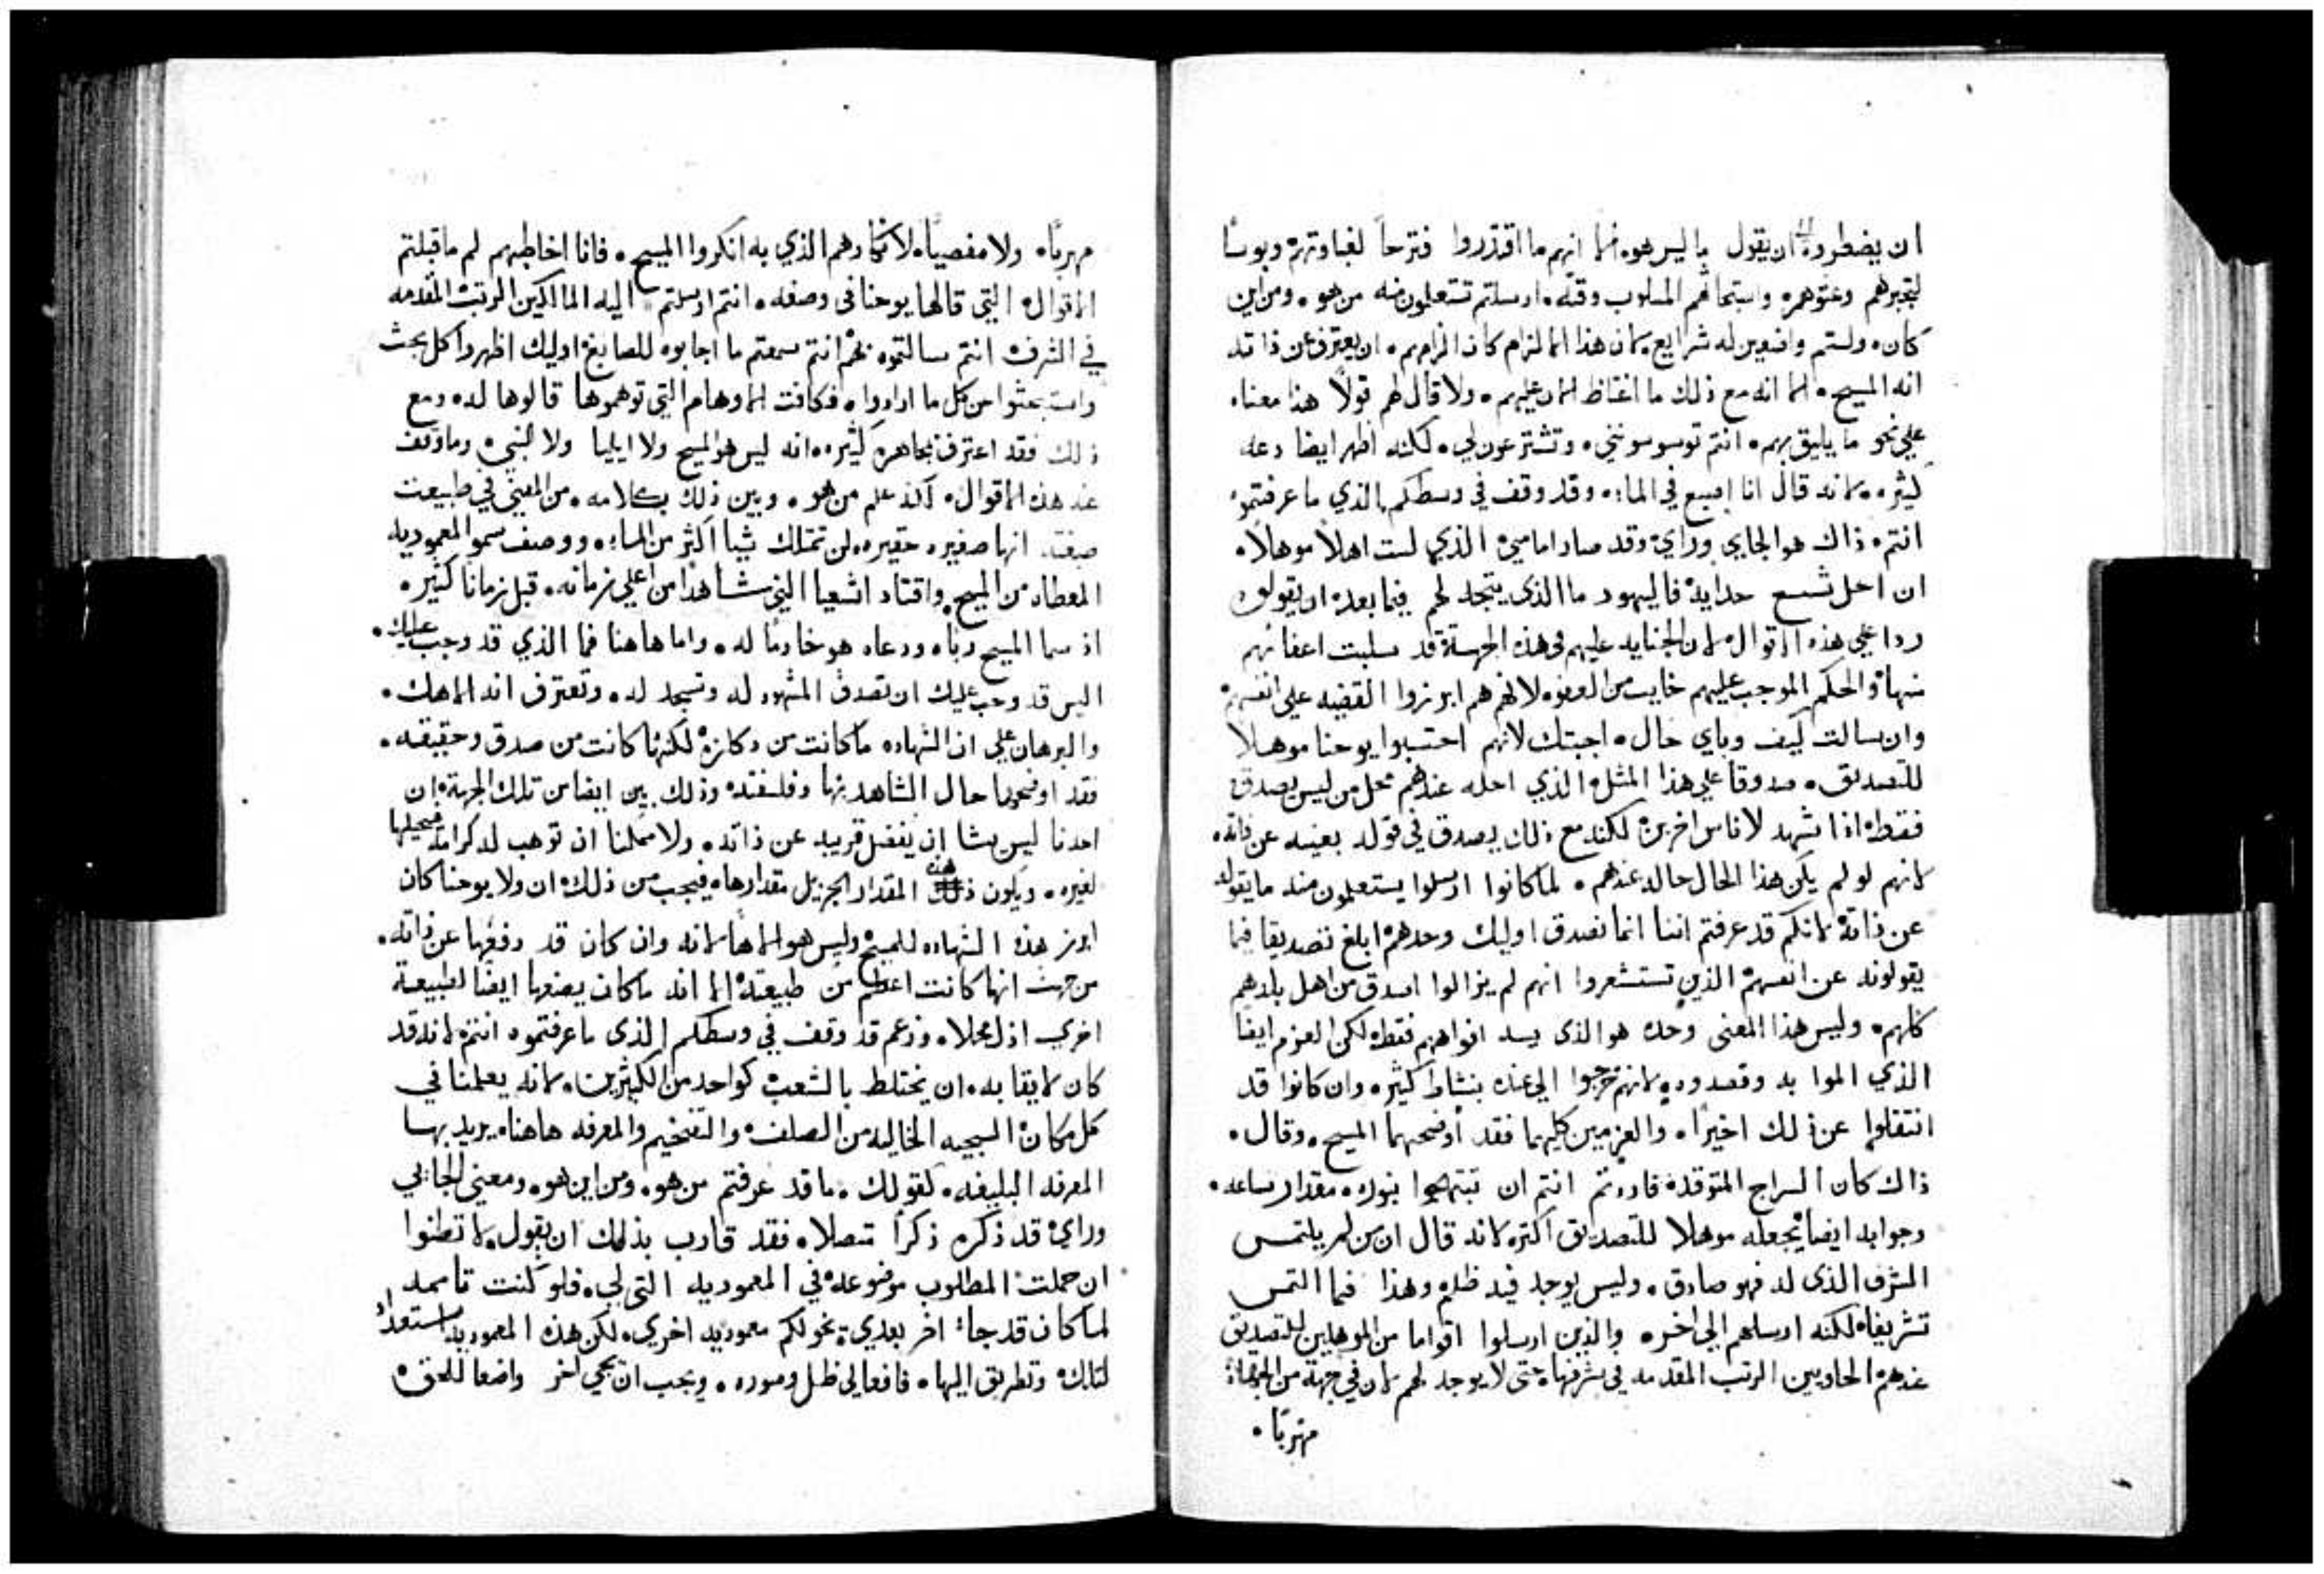 ان يضطروه الى ان يقول ما ليس هو، الا انهم ما اقتدروا فترحاً لغباوتهم وبوسًا
لتجبرهم وعتوهم، واستبحاثهم المسلوب وقته، ارسلتم تستعلمون منه من هو، ومن اين
كان، ولستم واضعين له شرايع، لان هذا الالزام كان الزامهم، ان يعترف عن ذاته
انه المسيح، الا انه مع ذلك ما اغتاظ الان عليهم، ولا قال لهم قولًا هذا معناه
علي نحو ما يليق بهم، انتم توسوسونني، وتشترعون لي، لكنه اظهر ايضا دعه
كثيره، لانه قال انا اصبغ في الماء، وقد وقف في وسطكم، الذي ما عرفتموه
انتم، ذاك هو الجاي وراي، وقد صار امامي، الذي لست اهلًا موهلًا،
ان احل شسع حدايه، فاليهود ما الذي يتجه لهم فيما بعد، ان يقولوه
ردا علي هذه الاقوال، لان الجنايه عليهم في هذه الجهة، قد سلبت اعفانهم
منها، والحكم الموجب عليهم خايب من العفو، لانهم هم ابرزوا القضيه علي انفسهم
وان سالت كيف وباي حال، اجبتك لانهم احتسبوا يوحنا موهلا
للتصديق، صدوقا علي هذا المثل، الذي احله عندهم محل من ليس يصدق
فقط، اذا شهد لاناس اخرين، لكنه مع ذلك يصدق في قوله بعينه عن ذاته،
لانهم لو لم يكن هذا الحال حاله عندهم، لما كانوا ارسلوا يستعلمون منه ما يقوله
عن ذاته، لانكم قد عرفتم اننا انما نصدق اوليك وحدهم، ابلغ تصديقا فيما
يقولونه عن انفسهم، الذين تستشعروا انهم لم يزالوا اصدق من اهل بلدهم
كلهم، وليس هذا المعنى وحده هو الذي يسد افواههم فقط، لكن العزم ايضا
الذي الموا به وقصدوه، لانهم خرجوا الي عنده بنشاط كثير، وان كانوا قد
انتقلوا عن ذلك اخيرا، والعزمين كليهما فقد اوضحهما المسيح، وقال،
ذاك كان السراج المتوقد، فاردتم انتم ان تبتهجوا بنوره، مقدار ساعه،
وجوابه ايضا يجعله موهلا للتصديق اكثر، لانه قال ان من لم يلتمس
الشرف الذي له فهو صادق، وليس يوجد فيه ظلم، وهذا فما التمس
تشريفا، لكنه ارسلهم الي اخر، والذين ارسلوا اقواما من الموهلين للتصديق
عندهم، الحاويين الرتب المقدمه في شرفها، حتى لا يوجد لهم لان في جهة من الجهات
مهربًا،
مهربًا، ولا مفصيًا، لانكارهم الذي به انكروا المسيح، فانا اخاطبهم لم ما قبلتم
الاقوال، التي قالها يوحنا في وصفه، انتم ارسلتم اليه المالكين الرتب المقدمه
في الشرف، انتم سالتموه بهم، انتم سمعتم ما اجابوه للصابغ، اوليك اظهروا كل بحث
واستبحثوا من كل ما ارادوا، فكافت الاوهام التي توهموها قالوها له، ومع
ذلك فقد اعترف بمجاهره كثيره، انه ليس هو المسيح ولا ايليا ولا النبي، وما وقف
عند هذه الاقوال، لكنه علم من هو، وبين ذلك بكلامه، من المعني في طبيعت
صبغته، انها صغيره حقيره، لن تمتلك شيا اكثر من الماء، ووصف سمو المعموديه
المعطاه من المسيح، واقتاد اشعيا النبي شاهدا من اعلي زمانه، قبل زمانا كثير،
اذ سما المسيح ربا، ودعاه هو خادمًا له، واما هاهنا فما الذي قد وجب عليك،
اليس قد وجب عليك ان تصدق المشهود له وتسجد له، وتعترف انه الاهك،
والبرهان علي ان الشهاده ما كانت من دكازه، لكنها كانت من صدق وحقيقه،
فقد اوضحوها حال الشاهد بها وفلسفته، وذلك بين ايضا من تلك الجهة، ان
احدنا ليس يشا ان يفضل قريبه عن ذاته، ولا ممكنا ان توهب له كرامة فيحيلها
لغيره، ويكون هذا المقدار الجزيل مقدارها، فيجب من ذلك، ان ولا يوحنا كان
ابرز هذه الشهاده للمسيح، وليس هو الاهًا، لانه وان كان قد دفعها عن ذاته،
من حيث انها كانت اعظم من طبيعته، الا انه ما كان يضعها ايضا لطبيعة
اخري اذل محلا، وزعم قد وقف في وسطكم الذي ما عرفتموه انتم، لانه قد
كان لايقا به، ان يختلط بالشعب، كواحد من الكثيرين، لانه يعلمنا في
كل مكان، السجيه الخاليه من الصلف، والتفخيم والمعرفه هاهنا، يريد بها
المعرفه البليغه، كقولك، ما قد عرفتم من هو، ومن اين هو، ومعني الجاي
وراي، قد ذكره ذكرًا متصلا، فقد قارب بذلك ان يقول، لا تظنوا
ان جملت المطلوب موضوعه في المعموديه التي لي، فلو كنت تامه
لما كان قد جاء اخر بعدي، يخولكم معموديه اخري، لكن هذه المعموديه استعداد
لتلك، وتطريق اليها، فافعالي ظل وصوره، ويجب ان يجي اخر واضعا للحق،